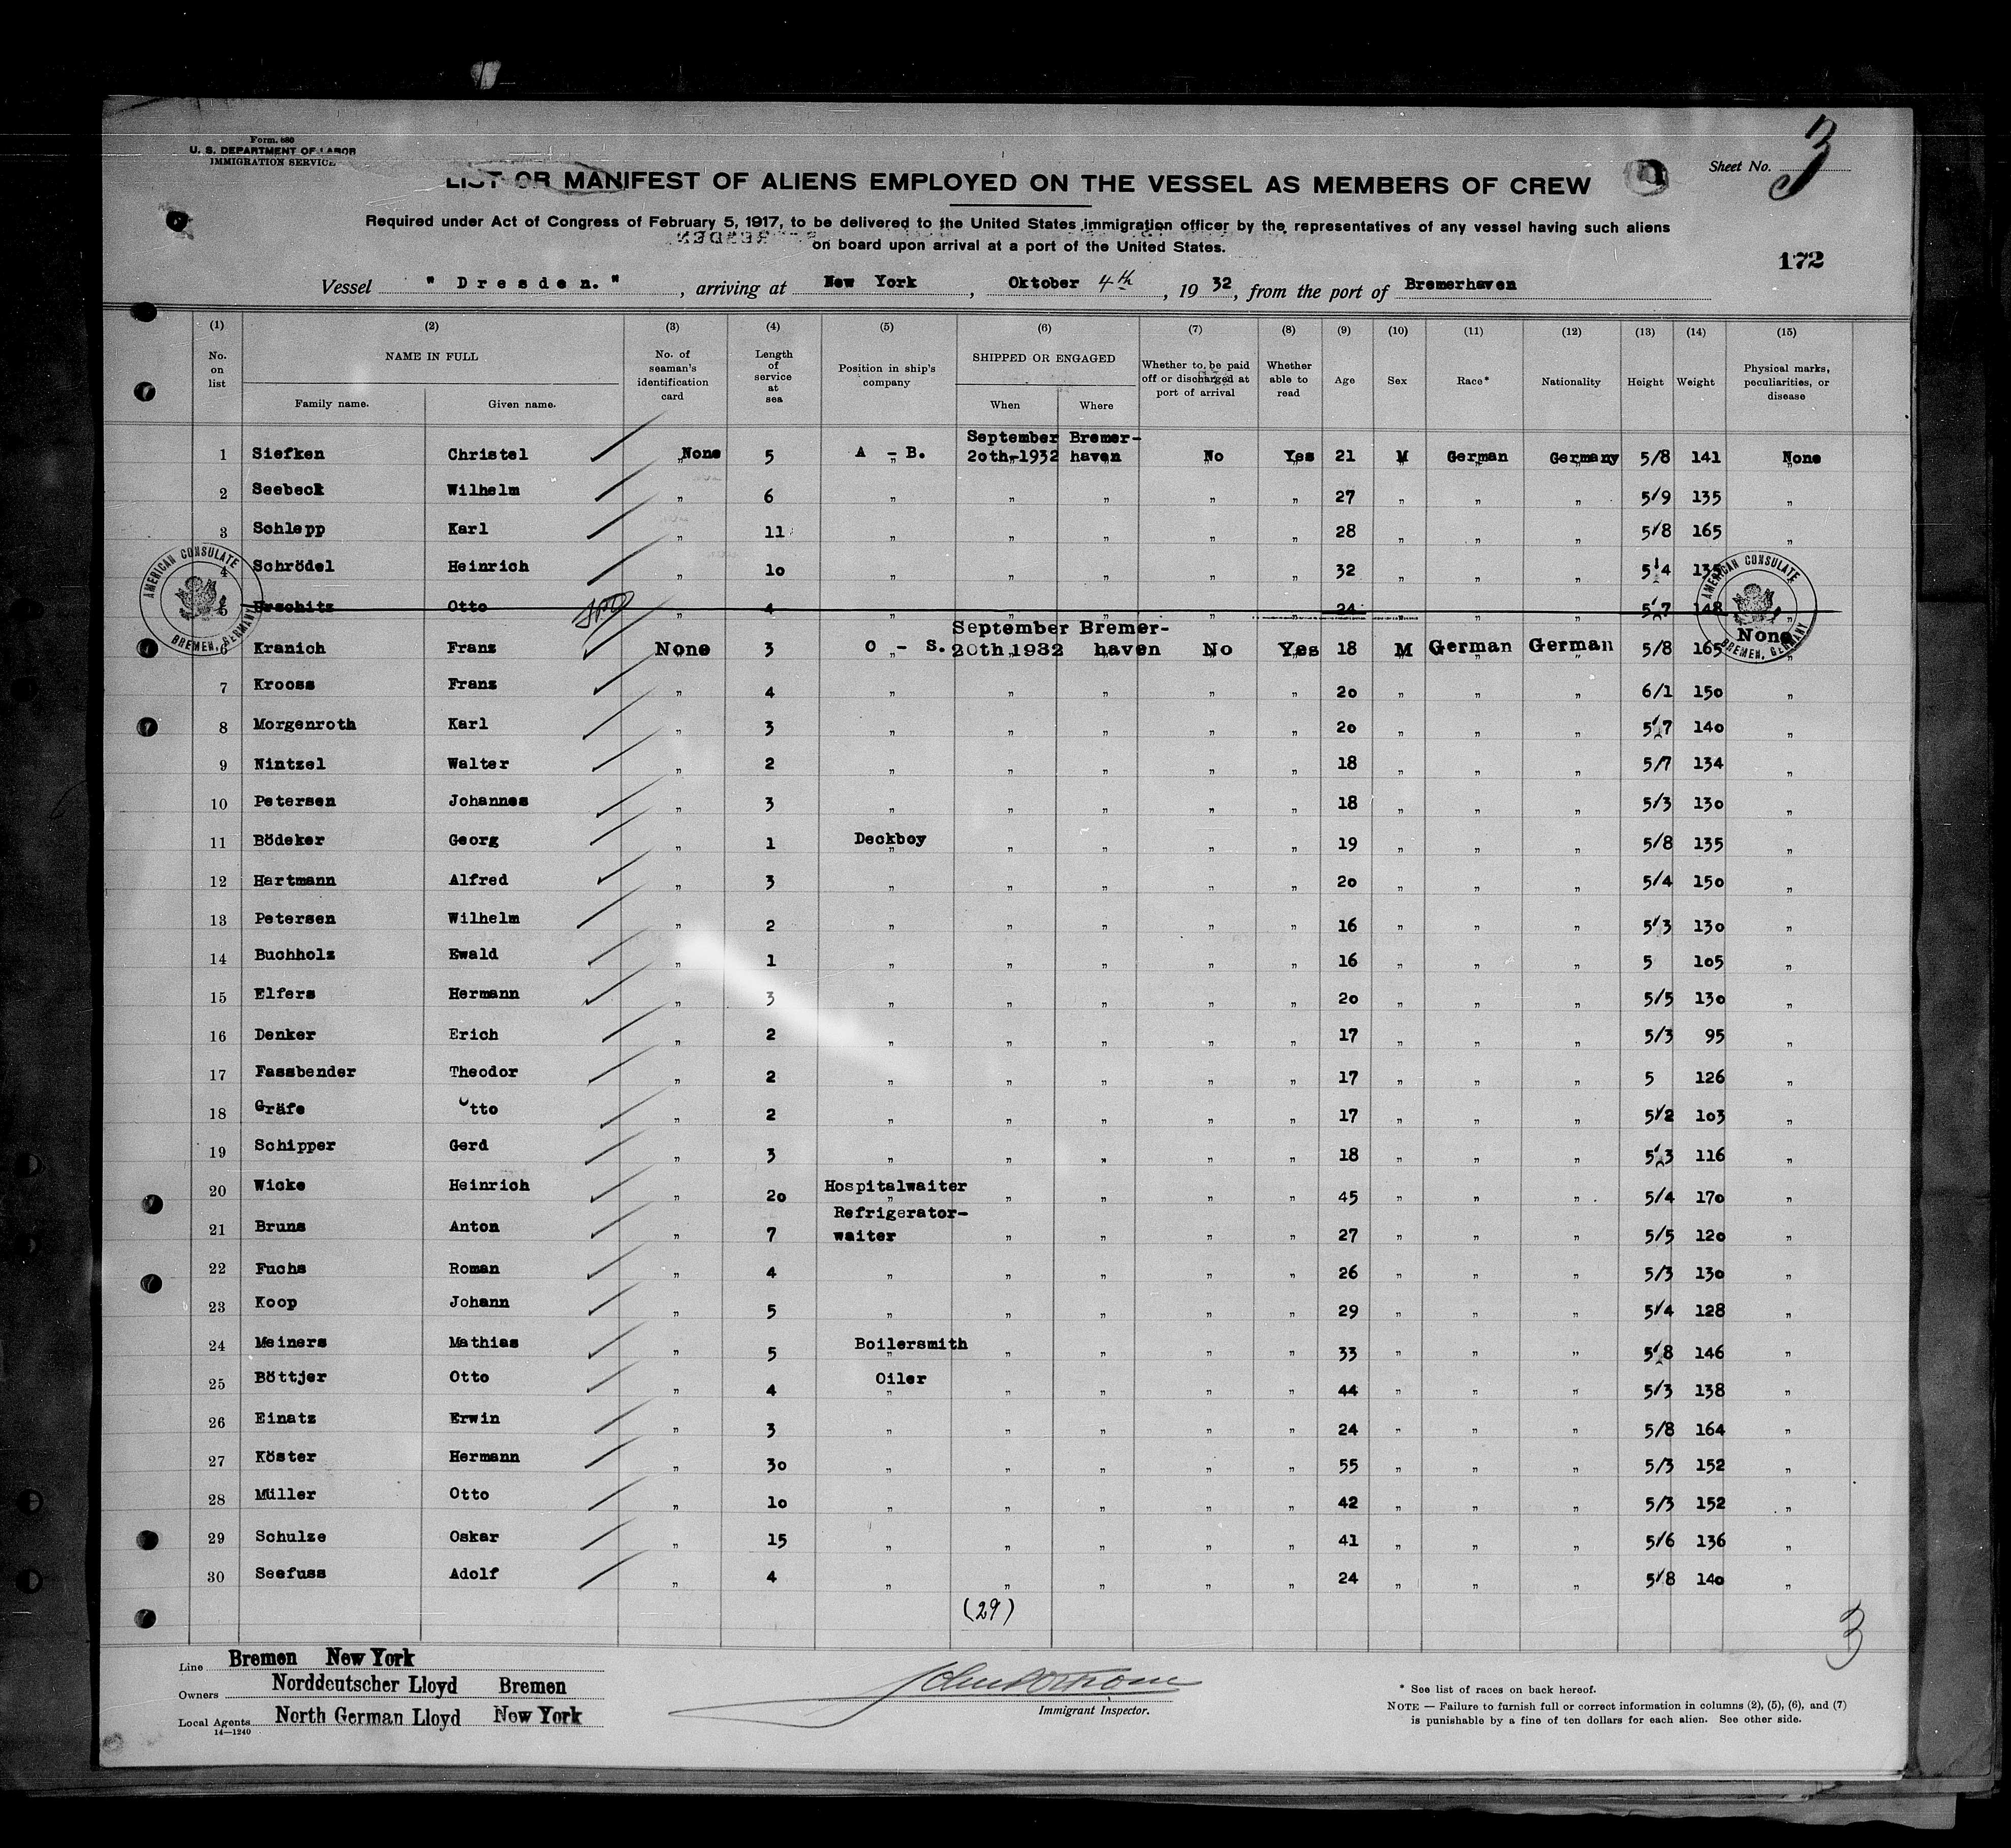 Form. 680
U. S. DEPARTMENT OF LABOR
IMMIGRATION SERVICE
Sheet No. 3
LIST OR MANIFEST OF ALIENS EMPLOYED ON THE VESSEL AS MEMBERS OF CREW
Required under Act of Congress of February 5, 1917, to be delivered to the United States immigration officer by the representatives of any vessel having such aliens
on board upon arrival at a port of the United States.
172
Vessel " Dresden. ", arriving at New York, Oktober 4th, 1932, from the port of Bremerhaven
(1) (2) (3) (4) (5) (6) (7) (8) (9) (10) (11) (12) (13) (14) (15)
No. on list NAME IN FULL Family name. Given name. No. of seaman's identification card Length of service at sea Position in ship's company SHIPPED OR ENGAGED When Where Whether to be paid off or discharged at port of arrival Whether able to read Age Sex Race* Nationality Height Weight Physical marks, peculiarities, or disease
1 Siefken Christel None 5 A - B. September 20th-1932 Bremer-haven No Yes 21 M German Germany 5/8 141 None
2 Seebeck Wilhelm " 6 " " " " " 27 " " " 5/9 135 "
3 Schlepp Karl " 11 " " " " " 28 " " " 5/8 165 "
4 Schrödel Heinrich " 10 " " " " " 32 " " " 5/4 135 "
5 Urschitz Otto " 4 " " " " " 24 " " " 5/7 148
6 Kranich Franz None 3 O - S. September 20th 1932 Bremer-haven No Yes 18 M German German 5/8 165 None
7 Krooss Franz " 4 " " " " " 20 " " " 6/1 150 "
8 Morgenroth Karl " 3 " " " " " 20 " " " 5/7 140 "
9 Nintzel Walter " 2 " " " " " 18 " " " 5/7 134 "
10 Petersen Johannes " 3 " " " " " 18 " " " 5/3 130 "
11 Bödeker Georg " 1 Deckboy " " " " 19 " " " 5/8 135 "
12 Hartmann Alfred " 3 " " " " " 20 " " " 5/4 150 "
13 Petersen Wilhelm " 2 " " " " " 16 " " " 5/3 130 "
14 Buchholz Ewald " 1 " " " " " 16 " " " 5 105 "
15 Elfers Hermann " 3 " " " " " 20 " " " 5/5 130 "
16 Denker Erich " 2 " " " " " 17 " " " 5/3 95 "
17 Fassbender Theodor " 2 " " " " " 17 " " " 5 126 "
18 Gräfe Otto " 2 " " " " " 17 " " " 5/2 103 "
19 Schipper Gerd " 3 " " " " " 18 " " " 5/3 116 "
20 Wicke Heinrich " 20 Hospitalwaiter " " " " 45 " " " 5/4 170 "
21 Bruns Anton " 7 Refrigerator-waiter " " " " 27 " " " 5/5 120 "
22 Fuchs Roman " 4 " " " " " 26 " " " 5/3 130 "
23 Koop Johann " 5 " " " " " 29 " " " 5/4 128 "
24 Meiners Mathias " 5 Boilersmith " " " " 33 " " " 5/8 146 "
25 Böttjer Otto " 4 Oiler " " " " 44 " " " 5/3 138 "
26 Einatz Erwin " 3 " " " " " 24 " " " 5/8 164 "
27 Köster Hermann " 30 " " " " " 55 " " " 5/3 152 "
28 Müller Otto " 10 " " " " " 42 " " " 5/3 152 "
29 Schulze Oskar " 15 " " " " " 41 " " " 5/6 136 "
30 Seefuss Adolf " 4 " " " " " 24 " " " 5/8 140 "
AMERICAN CONSULATE BREMEN, GERMANY
AMERICAN CONSULATE BREMEN, GERMANY
(29)
3
Line Bremen New York
Owners Norddeutscher Lloyd Bremen
Local Agents North German Lloyd New York
14—1240
Immigrant Inspector.
* See list of races on back hereof.
NOTE — Failure to furnish full or correct information in columns (2), (5), (6), and (7)
is punishable by a fine of ten dollars for each alien. See other side.